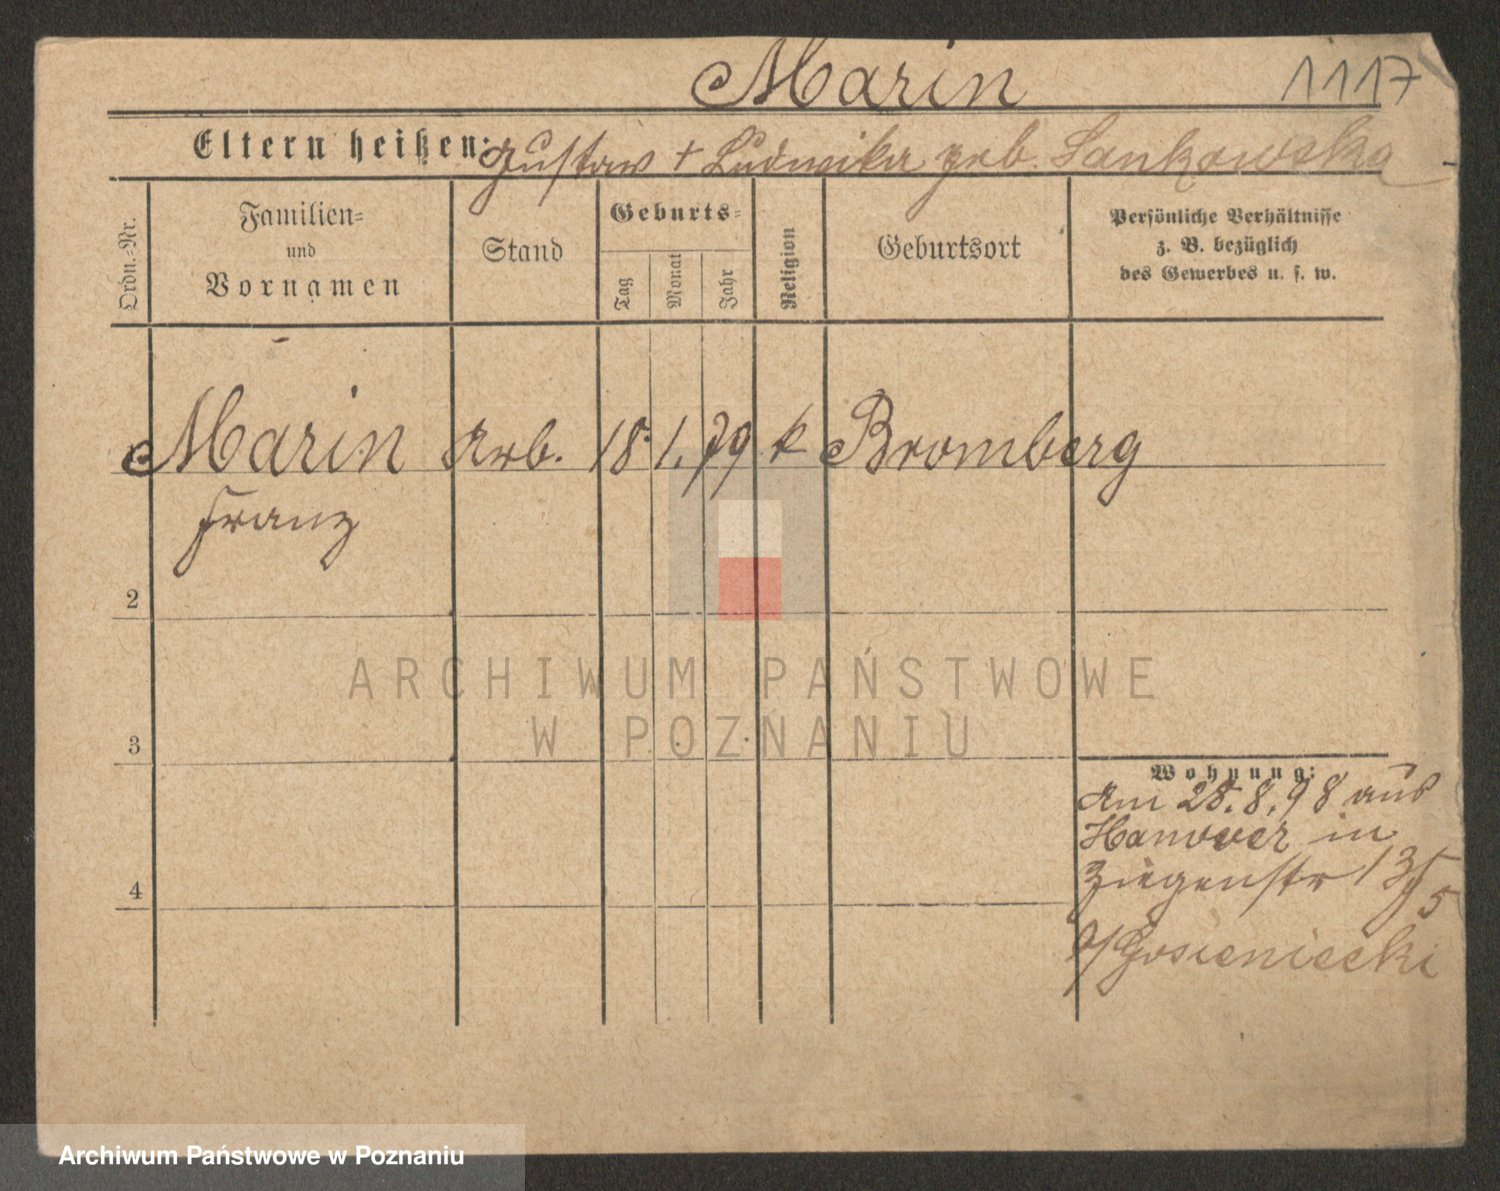 Marin
1117
Eltern heißen: Gustav + Ludwika geb. Sankowska
Ordn.-Nr.
Familien-
und
Vornamen
Stand
Geburts-
Tag
Monat
Jahr
Religion
Geburtsort
Persönliche Verhältnisse
z. B. bezüglich
des Gewerbes u. s. w.
Marin Arb. 18. 1. 79 k Bromberg
Franz
2
3
4
Wohnung:
Am 28. 8. 98 aus
Hanover in
Ziegenstr
b/Gosieniecki
ARCHIWUM PAŃSTWOWE
W POZNANIU
Archiwum Państwowe w Poznaniu